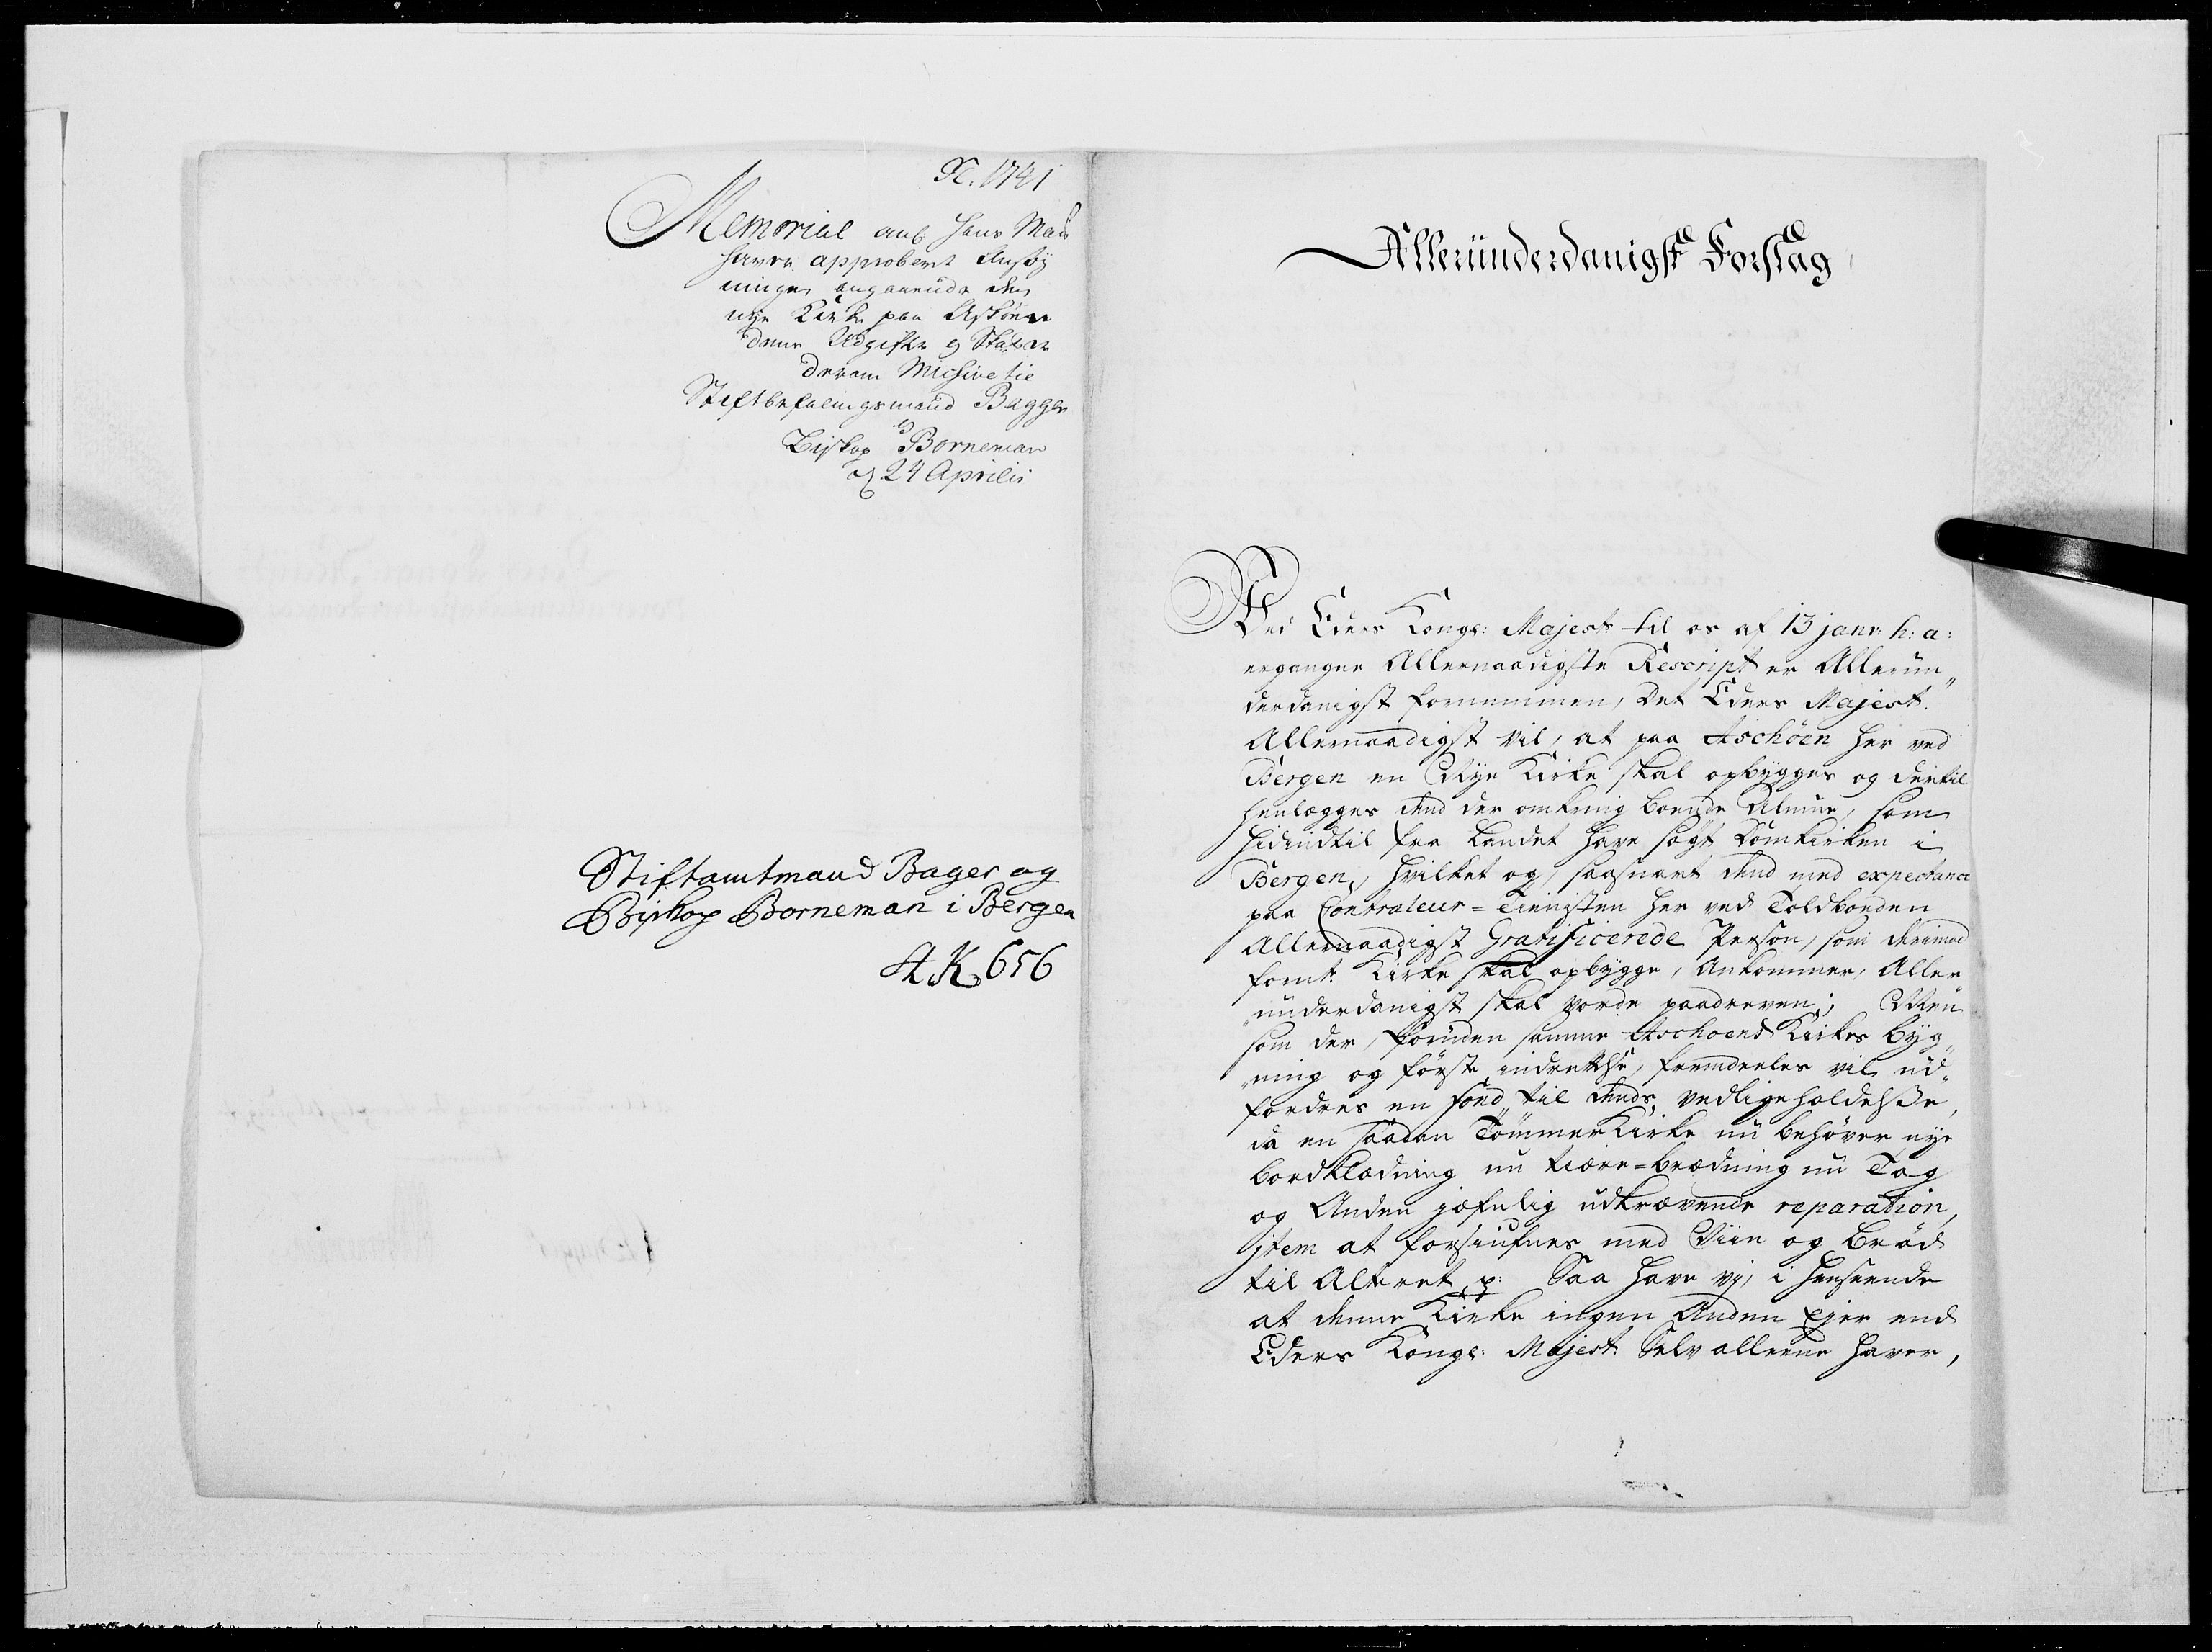 1741
Memorial anl. Hans May
haver approberet Ansøg
ninger angaaende den
nye Kirke paa Askøen
dens Udgifter og
derom Missive til
Stiftbefalingsmand Bagger
og
Biskop Borneman
d 24 Aprilis
Stiftamtmand Bager og
Biskop Borneman i Bergen
A K 656
Alleründerdanigst Forslag
Ved Eders Kongl: Majest: til os af 13 janr: h: a:
ergangne Allernaadigste Rescript er Allerün„
derdanigst fornemmen, det Eders Majest:
Allernaadigst vil, at paa Aschöen her ved
Bergen en Nye Kirke skal opbygges og dertil
henlægges dend der omkring boende Almue, som
hidindtil fra Landet have søgt Domkirken i
Bergen, hvilket og, saasnart dend med expectance
paa Contraleur-Tienisten her ved Toldboeden
Allernaadigst Gratificerede Person, som derimod
formt: Kirke skal opbygge, Ankommer, Aller
„ünderdanigst skal vorde paadreven; Men
som der, foruden samme Aschoens Kirkes byg„
„ning og første indrettelse, fremdeeles vil üd„
fordres en fond til dends vedligeholdelsse,
da en saadan TømmerKirke nü behøver nye
bordklædning nu tiære-brædning nü Tag
og Anden jæfnlig üdkrævende reparation,
jtem at forsiufnes med Viin og Brød
til Alteret p: Saa have vj, i henseende
at denne Kirke ingen Anden Ejer end
Eders Kongl: Majest: Selv alleene haver,